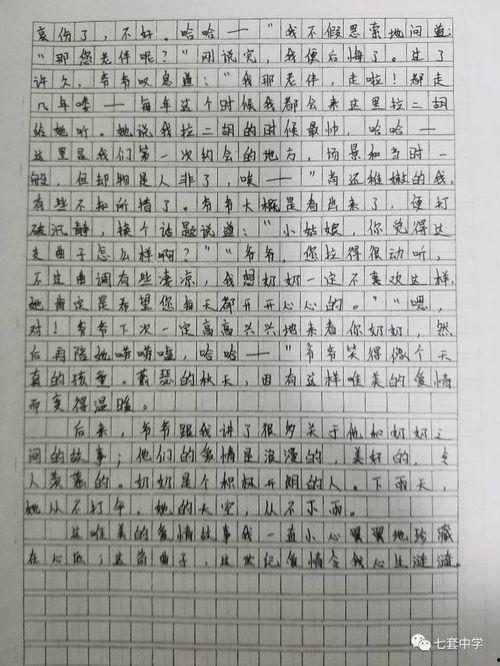 哀伤了，不好。哈哈——"我不假思索地问道：
"那您老伴呢？"刚说完，我便后悔了。过了
许久，爷爷叹息道："我那老伴，走啦！都走
几年喽——每年这个时候我都会来这里拉二胡
给她听。她说我拉二胡的时候最帅，哈哈——
这里是我们第一次约会的地方，场景和当时一
般，但却物是人非了，唉——"尚还稚嫩的我，
有些不知所措了。爷爷大概是看出来了，便打
破沉静，换个话题说道："小姑娘，你觉得这
支曲子怎么样啊？""爷爷，你拉得很动听，
不过曲调有些凄凉，我想奶奶一定不喜欢这样，
她肯定是希望您每天都开开心心的。""嗯，
对！爷爷下次一定高高兴兴地来看你奶奶，然
后再陪她唠唠嗑，哈哈——"爷爷笑得像个天
真的孩童。萧瑟的秋天，因有这样唯美的爱情
而变得温暖。
后来，爷爷跟我讲了很多关于他和奶奶之
间的故事；他们的爱情是浪漫的，美好的，令
人羡慕的。奶奶是个积极开朗的人。下雨天，
她从不打伞，她的天空，从不下雨。
这唯美的爱情故事我一直小心翼翼地珍藏
在心底；这首曲子，这世纪爱情令我心生涟漪。
七套中学